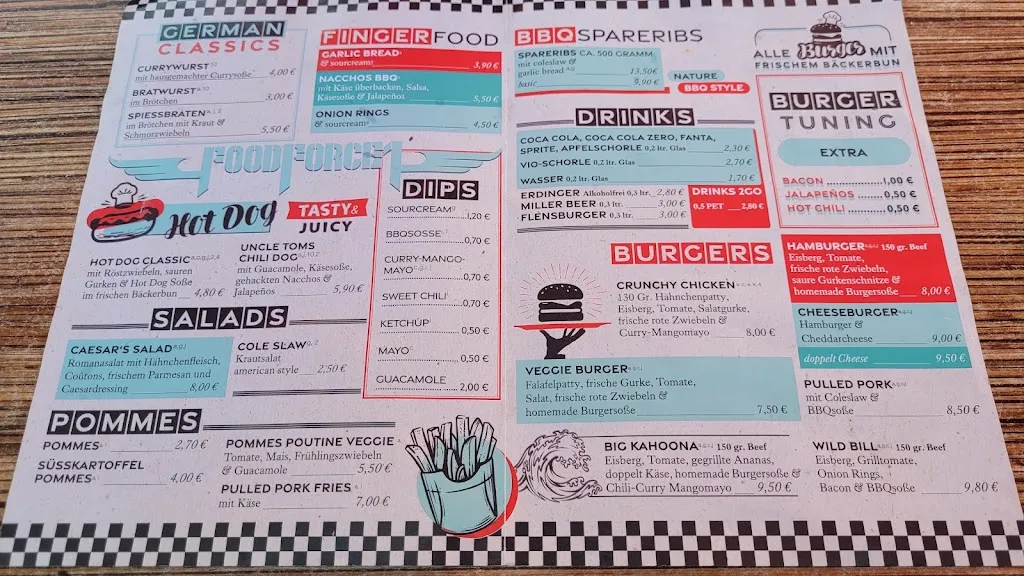 GERMAN
CLASSICS
CURRYWURST
mit hausgemachter Currysoße 4,00 €
BRATWURST
im Brötchen 3,00 €
SPIESSBRATEN
im Brötchen mit Kraut &
Schmorzwiebeln 5,50 €
FINGERFOOD
GARLIC BREAD
& sourcream 3,90 €
NACCHOS BBQ
mit Käse überbacken, Salsa,
Käsesoße & Jalapeños 5,50 €
ONION RINGS
& sourcream 4,50 €
FOODFORCE1
Hot Dog
TASTY &
JUICY
HOT DOG CLASSIC
mit Röstzwiebeln, sauren
Gurken & Hot Dog Soße
im frischen Bäckerbun 4,80 €
UNCLE TOMS
CHILI DOG
mit Guacamole, Käsesoße,
gehackten Nacchos &
Jalapeños 5,90 €
DIPS
SOURCREAM
1,20 €
BBQSOSSE
0,70 €
CURRY-MANGO-
MAYO
0,70 €
SWEET CHILI
0,70 €
KETCHUP
0,50 €
MAYO
0,50 €
GUACAMOLE
2,00 €
SALADS
CAESAR'S SALAD
Romanasalat mit Hähnchenfleisch,
Coûtons, frischem Parmesan und
Caesardressing 8,00 €
COLE SLAW
Krautsalat
american style 2,50 €
POMMES
POMMES 2,70 €
SÜSSKARTOFFEL
POMMES 4,00 €
POMMES POUTINE VEGGIE
Tomate, Mais, Frühlingszwiebeln
& Guacamole 5,50 €
PULLED PORK FRIES
mit Käse 7,00 €
BBQSPARERIBS
SPARERIBS CA. 500 GRAMM
mit coleslaw &
garlic bread 13,50€
basic 9,90 €
NATURE
BBQ STYLE
DRINKS
COCA COLA, COCA COLA ZERO, FANTA,
SPRITE, APFELSCHORLE 0,2 ltr. Glas 2,30 €
VIO-SCHORLE 0,2 ltr. Glas 2,70 €
WASSER 0,2 ltr. Glas 1,70 €
ERDINGER Alkoholfrei 0,3 ltr. 2,80 €
MILLER BEER 0,3 ltr. 3,00 €
FLENSBURGER 0,3 ltr. 3,00 €
DRINKS 2GO
0,5 PET 2,80 €
ALLE Burger MIT
FRISCHEM BÄCKERBUN
BURGER
TUNING
EXTRA
BACON 1,00 €
JALAPEÑOS 0,50 €
HOT CHILI 0,50 €
BURGERS
CRUNCHY CHICKEN
130 Gr. Hähnchenpatty,
Eisberg, Tomate, Salatgurke,
frische rote Zwiebeln &
Curry-Mangomayo 8,00 €
VEGGIE BURGER
Falafelpatty, frische Gurke, Tomate,
Salat, frische rote Zwiebeln &
homemade Burgersoße 7,50 €
BIG KAHOONA 150 gr. Beef
Eisberg, Tomate, gegrillte Ananas,
doppelt Käse, homemade Burgersoße &
Chili-Curry Mangomayo 9,50 €
HAMBURGER 150 gr. Beef
Eisberg, Tomate,
frische rote Zwiebeln,
saure Gurkenschnitze &
homemade Burgersoße 8,00 €
CHEESEBURGER
Hamburger &
Cheddarcheese 9,00 €
doppelt Cheese 9,50 €
PULLED PORK
mit Coleslaw &
BBQsoße 8,50 €
WILD BILL 150 gr. Beef
Eisberg, Grilltomate,
Onion Rings,
Bacon & BBQsoße 9,80 €